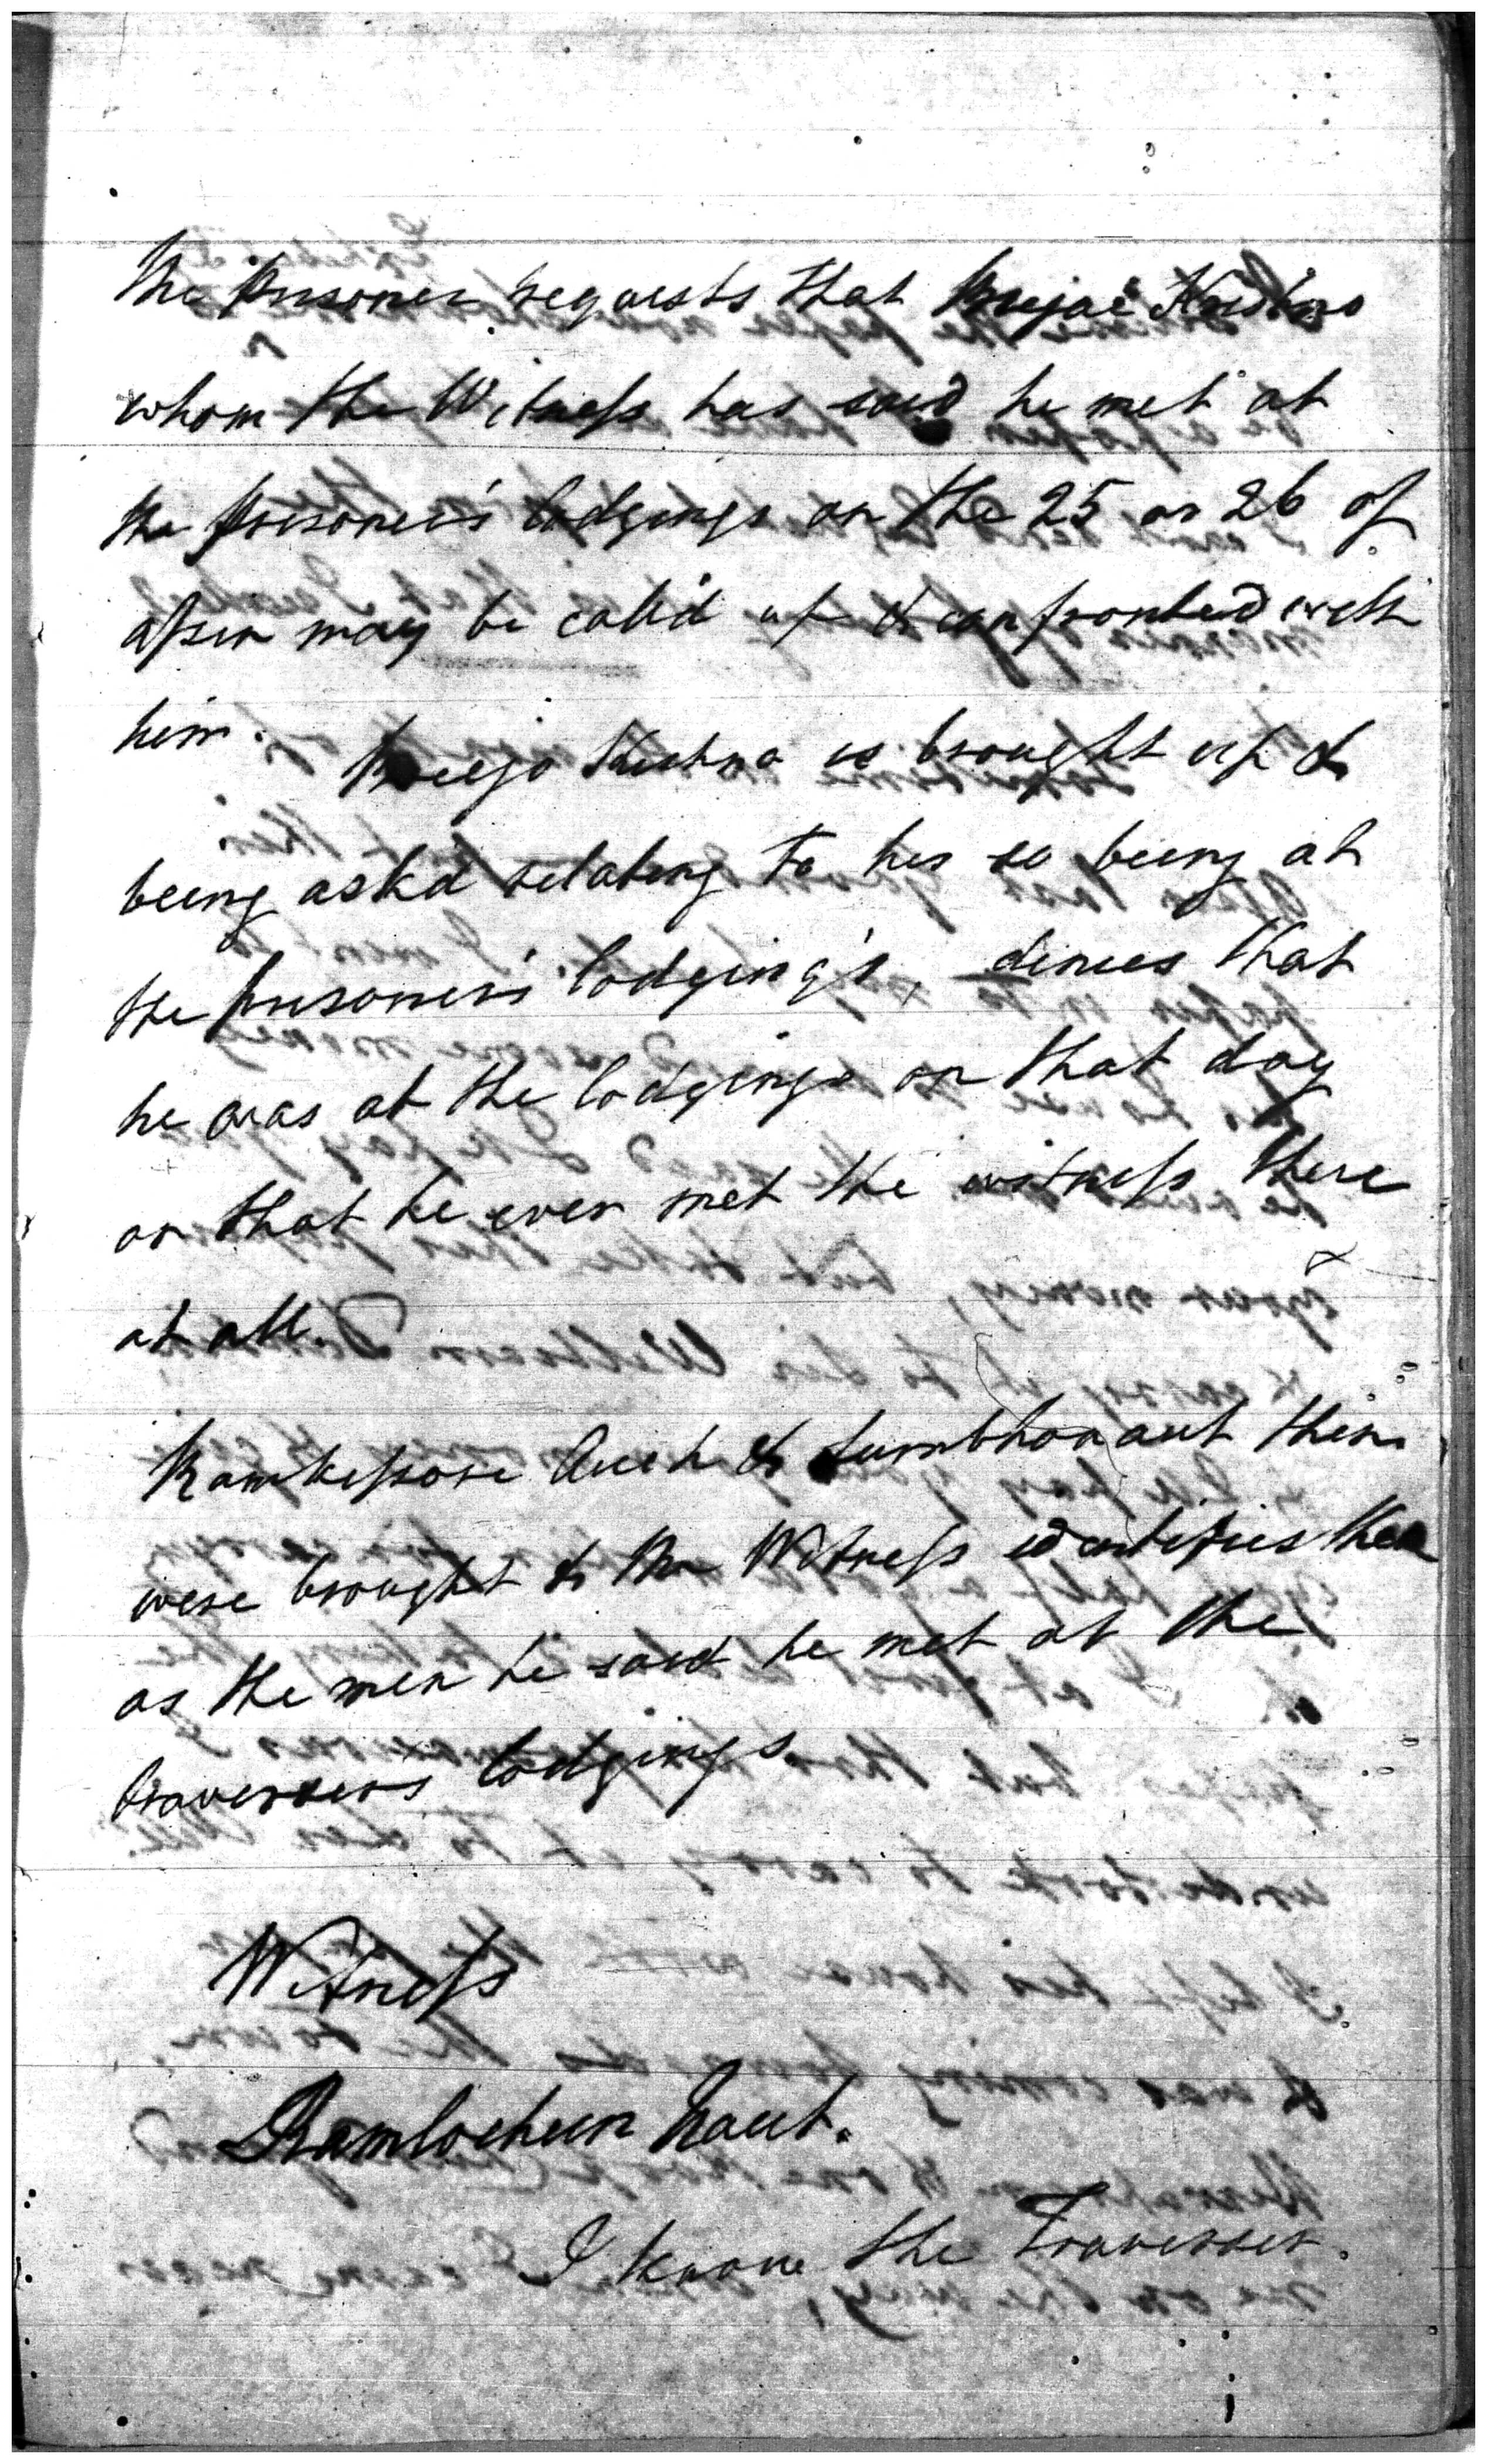 The Prisoner requests that Kistno
whom the Witness has said he met at
the Prisoner's lodgings on the 25 or 26 of
Assin may be call'd up & confronted with
him.
Kishno is brought up &
being ask'd relating to his so being at
the prisoner's lodging's, denies that
he was at the lodgings on that day
or that he ever met the witness there
at all.
Ramkissore &
were brought & the Witness identifies them
as the men he said he met at the
traversers lodgings
Witness
Ramlochun Raut.
I know the Traverser.